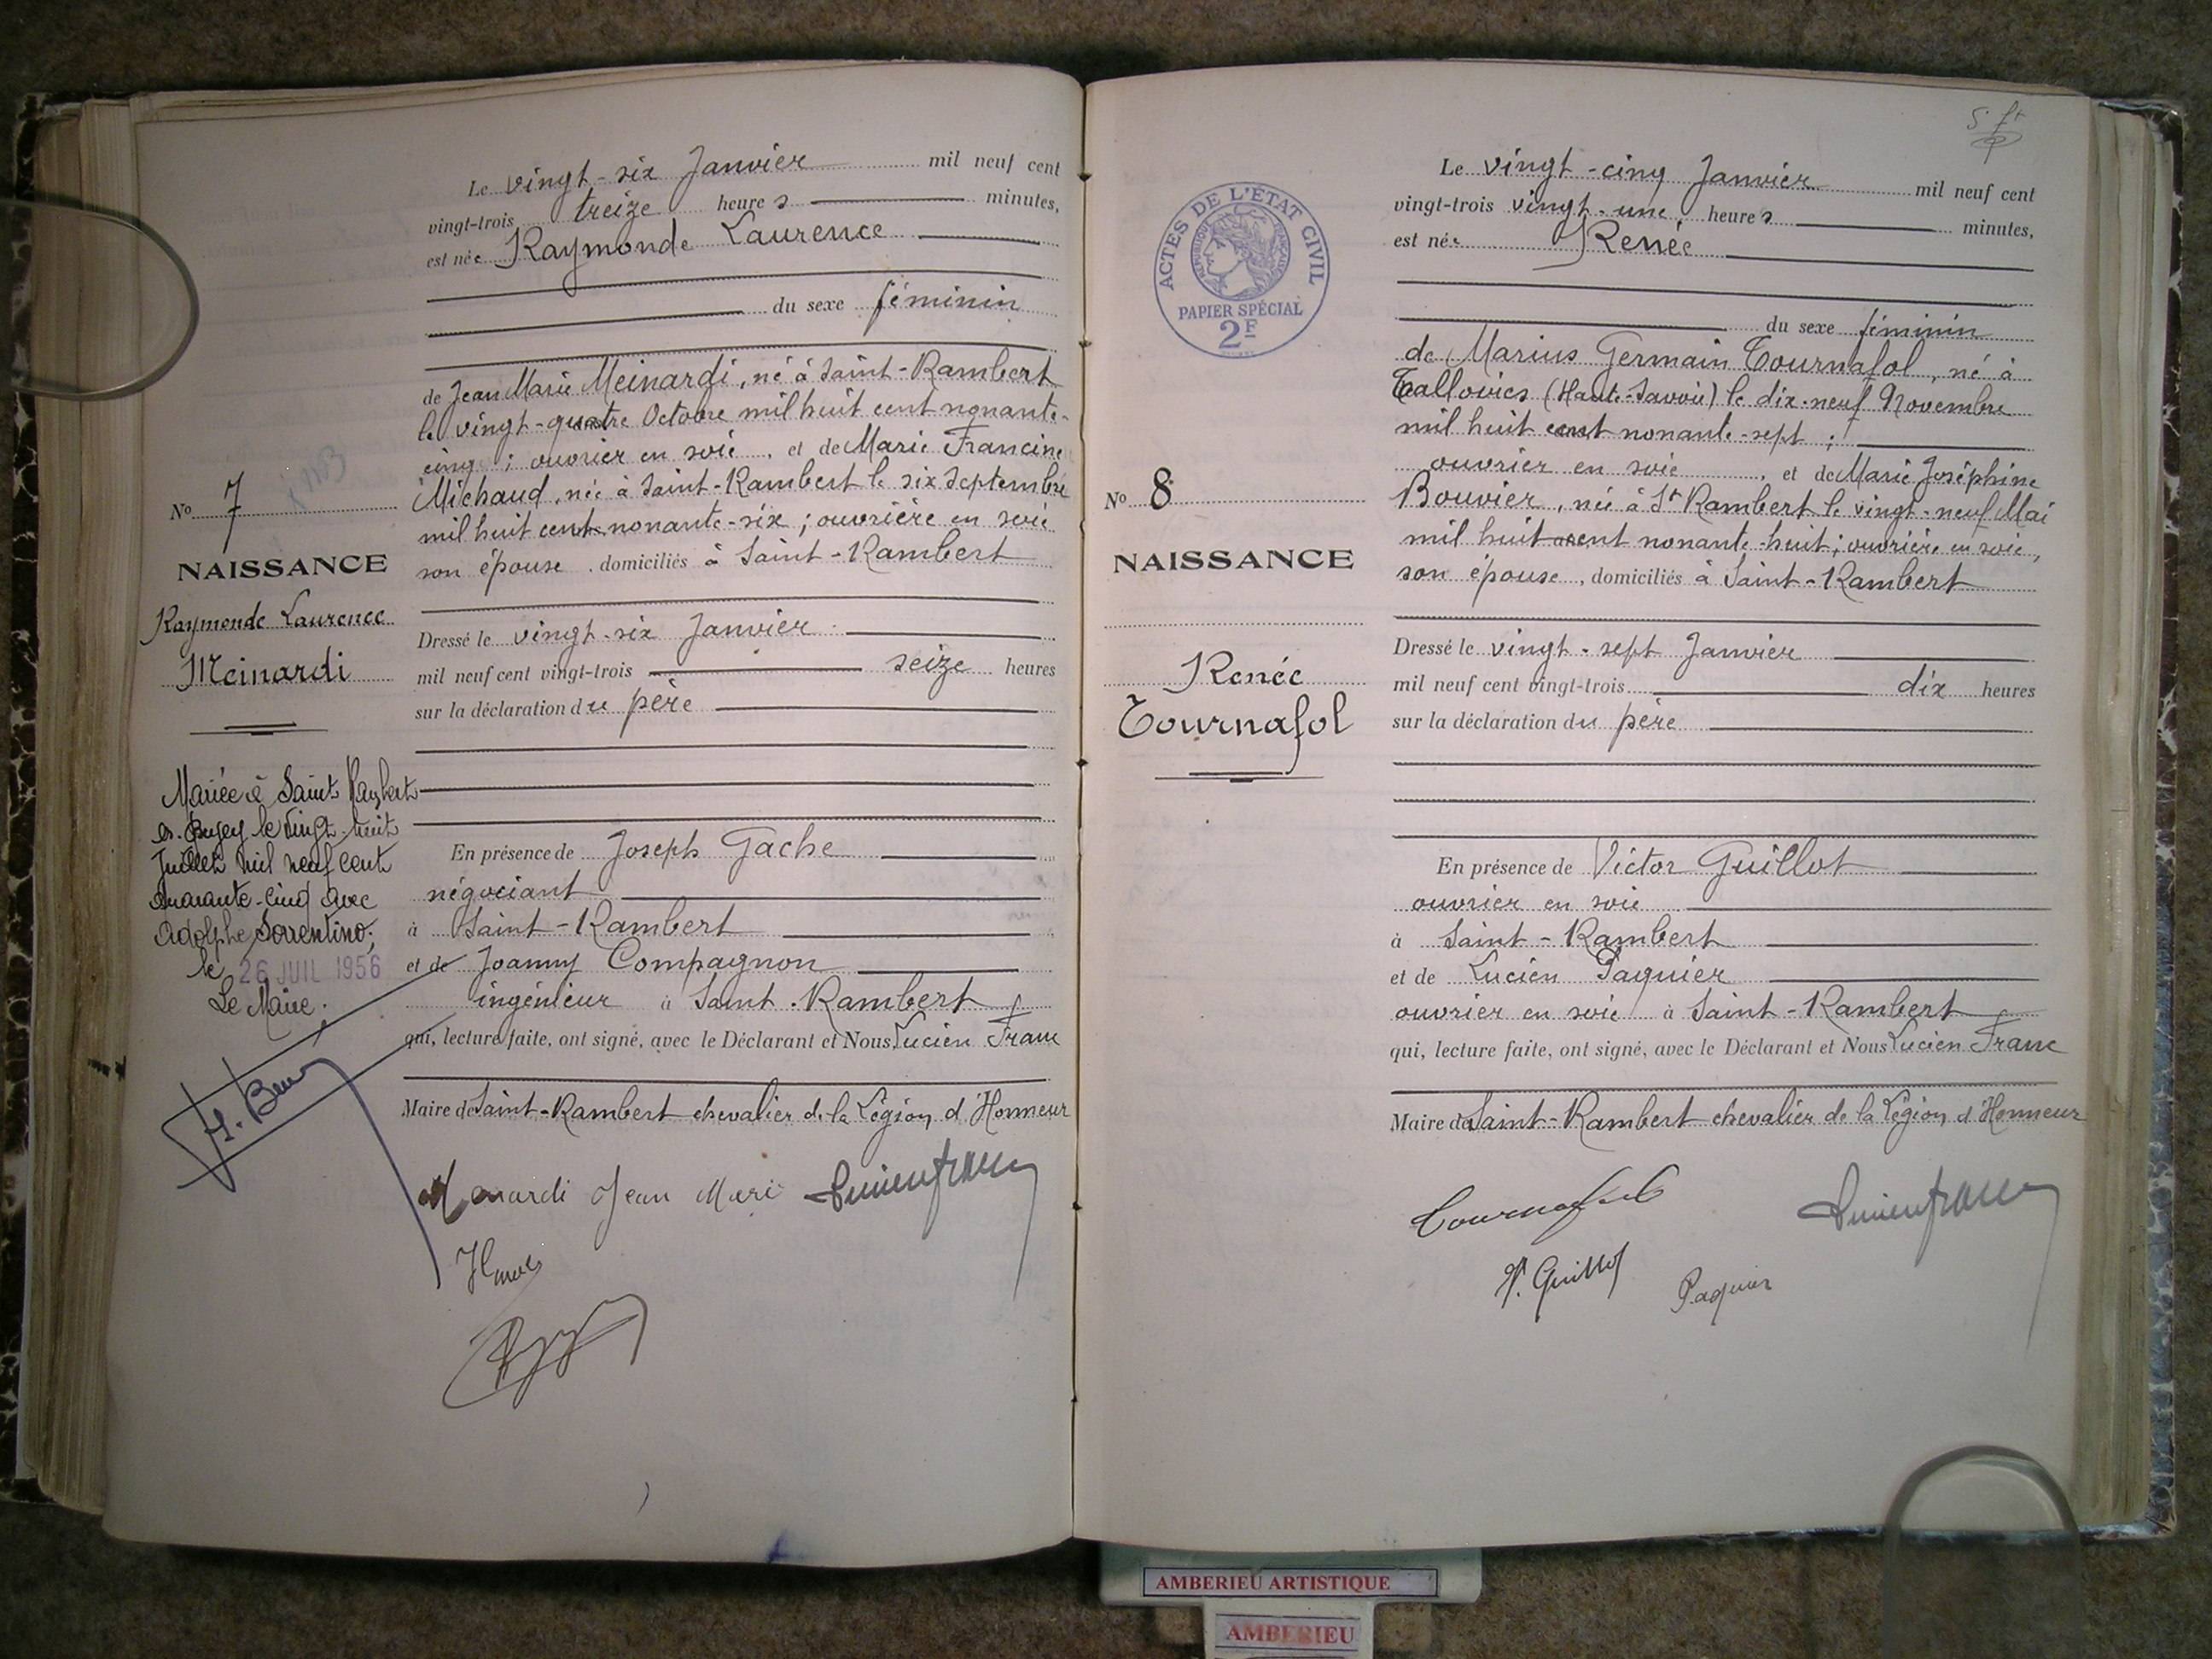 Le vingt-six Janvier mil neuf cent
vingt-trois treize heures minutes,
est née Raymonde Laurence
du sexe féminin
de Jean Marie Meinardi, né à Saint-Rambert
le vingt-quatre Octobre mil huit cent nonante-
cinq ; ouvrier en soie, et de Marie Francine
Michaud, née à Saint-Rambert le six Septembre
mil huit cent nonante-six ; ouvrière en soie
son épouse, domiciliés à Saint-Rambert
Dressé le vingt-six Janvier
mil neuf cent vingt-trois seize heures
sur la déclaration du père
En présence de Joseph Gache
négociant
à Saint-Rambert
et de Joanny Compagnon
ingénieur à Saint-Rambert
qui, lecture faite, ont signé, avec le Déclarant et Nous Lucien Franc
Maire de Saint-Rambert chevalier de la Légion d'Honneur
Jean Marie
No 7
NAISSANCE
Raymonde Laurence
Meinardi
Mariée à Saint Rambert
en-Bugey le vingt-huit
Juillet mil neuf cent
quarante-cinq avec
Adolphe Sorrentino.
le 26 JUIL 1956
Le Maire.
ACTES DE L'ÉTAT CIVIL
RÉPUBLIQUE FRANÇAISE
PAPIER SPÉCIAL
2F
Le vingt-cinq Janvier mil neuf cent
vingt-trois vingt-une heures minutes,
est née Renée
du sexe féminin
de Marius Germain Tournafol, né à
Talloires (Haute-Savoie) le dix-neuf Novembre
mil huit cent nonante-sept ;
ouvrier en soie, et de Marie Joséphine
Bouvier, née à St Rambert le vingt-neuf Mai
mil huit cent nonante-huit ; ouvrière en soie,
son épouse, domiciliés à Saint-Rambert
Dressé le vingt-sept Janvier
mil neuf cent vingt-trois dix heures
sur la déclaration du père
En présence de Victor Guillot
ouvrier en soie
à Saint-Rambert
et de Lucien Paquier
ouvrier en soie à Saint-Rambert
qui, lecture faite, ont signé, avec le Déclarant et Nous Lucien Franc
Maire de Saint-Rambert chevalier de la Légion d'Honneur
Tournafol
V. Guillot
Paquier
No 8
NAISSANCE
Renée
Tournafol
AMBERIEU ARTISTIQUE
AMBERIEU